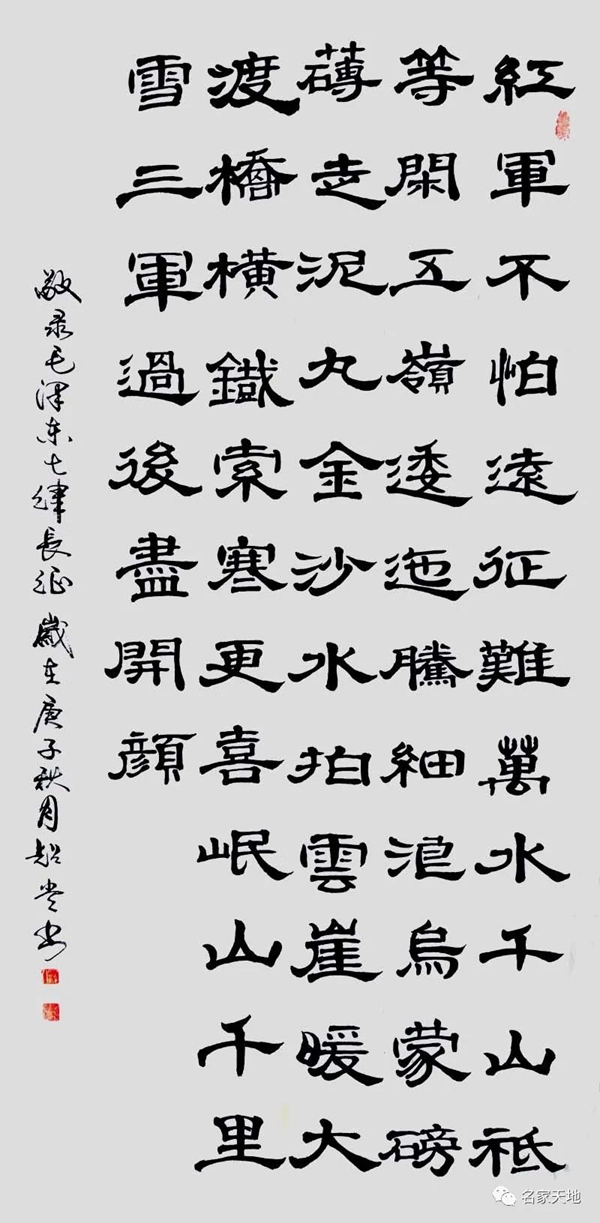 紅軍不怕遠征難萬水千山祗
等閑五嶺逶迤騰細浪烏蒙磅
礴走泥丸金沙水拍雲崖暖大
渡橋橫鐵索寒更喜岷山千里
雪三軍過後盡開顏
敬录毛澤东七律長征 歲在庚子秋月超书
名家天地